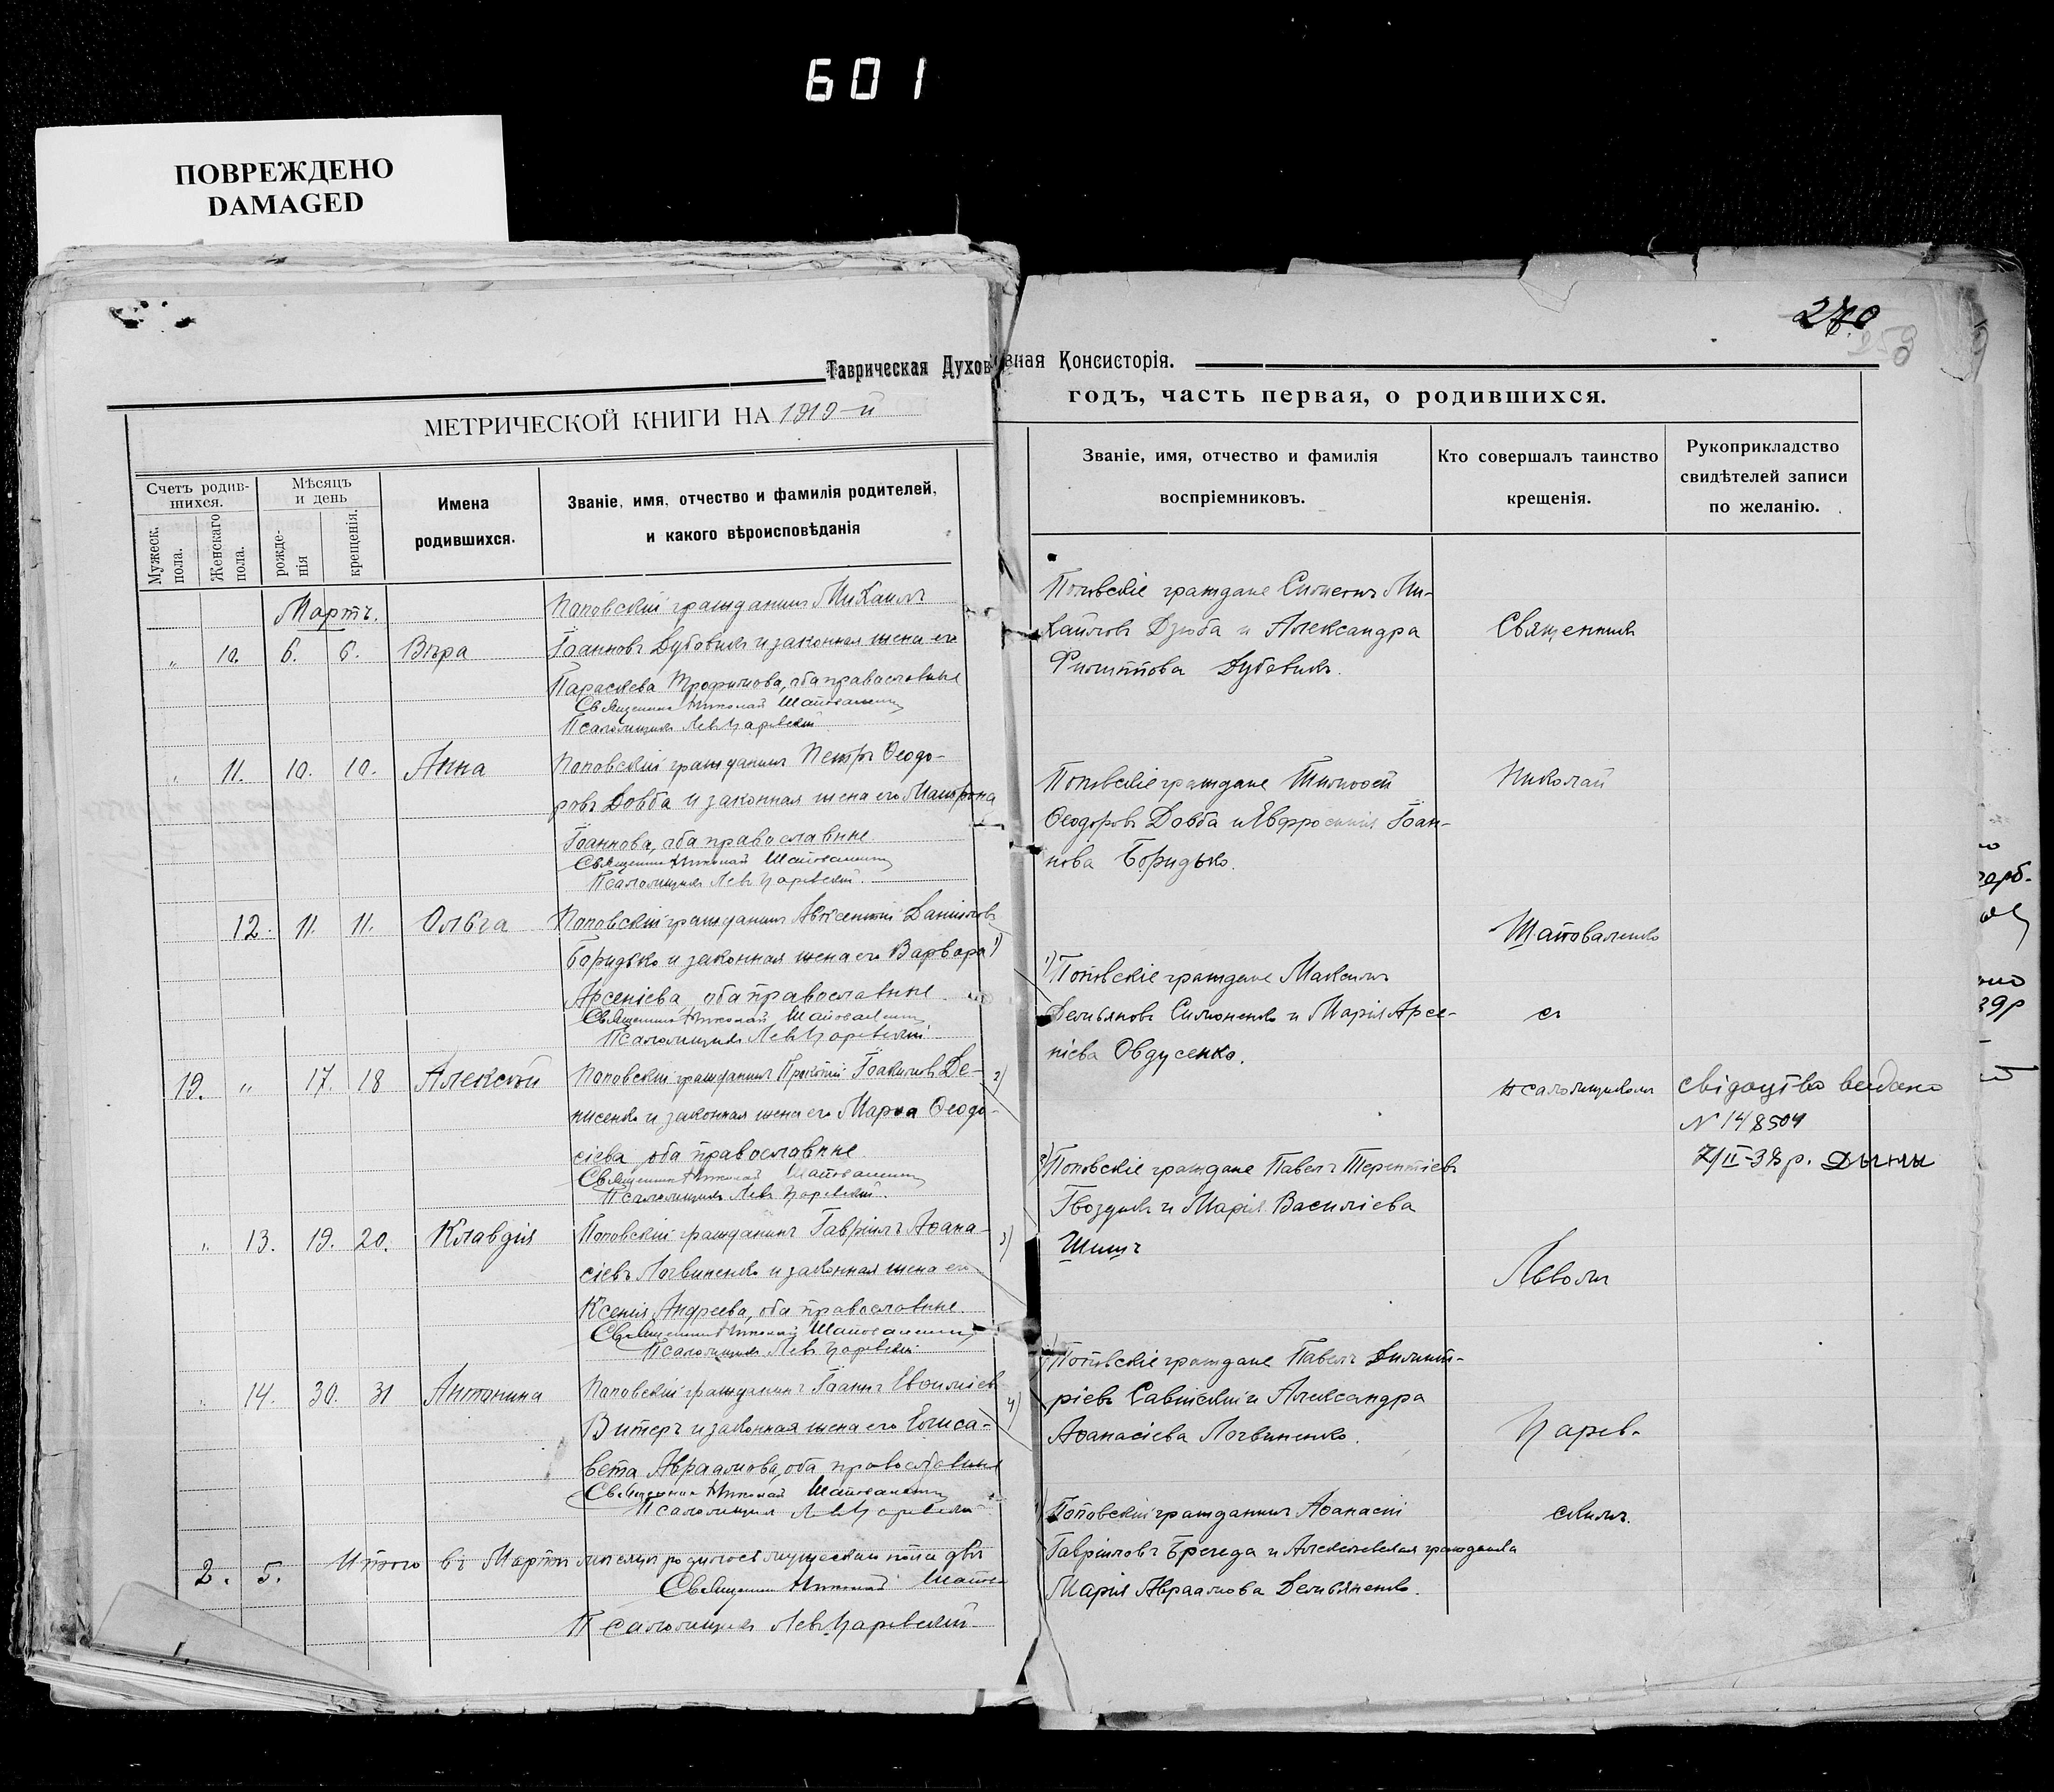 601
ПОВРЕЖДЕНО
DAMAGED
270
Таврическая Духовная Консисторія.
МЕТРИЧЕСКОЙ КНИГИ НА 1919-й
годъ, часть первая, о родившихся.
Счетъ родив-
шихся.
Мужеск.
пола.
Женскаго
пола.
Мѣсяцъ
и день
рожде-
нія
крещенія.
Имена
родившихся.
Званіе, имя, отчество и фамилія родителей,
и какого вѣроисповѣданія
Мартъ.
Поповскій гражданинъ Михаилъ
„ 10. 6. 6. Вѣра Іоанновъ Дубовикъ и законная жена его
Параскева Трофимова, оба православные
Священникъ Николай Шаповаленко
Псаломщикъ Левъ Царевскій
„ 11. 10. 10. Анна Поповскій гражданинъ Петръ Ѳеодо-
ровъ Довба и законная жена его Матрона
Іоаннова, оба православные
Священникъ Николай Шаповаленко
Псаломщикъ Левъ Царевскій.
12. 11. 11. Ольга Поповскій гражданинъ Авксентій Даніиловъ
Боридько и законная жена его Варвара 1)
Арсеніева, оба православные
Священникъ Николай Шаповаленко
Псаломщикъ Левъ Царевскій
19. „ 17. 18 Алексѣй Поповскій гражданинъ Іоакимовъ Де- 2)
нисенко и законная жена его Марѳа Ѳеодо-
сіева оба православные
Священникъ Николай Шаповаленко
Псаломщикъ Левъ Царевскій.
„ 13. 19. 20. Клавдія Поповскій гражданинъ Гавріилъ Аѳана- 3)
сіевъ Логвиненко и законная жена его
Ксенія Андреева, оба православные.
Священникъ Николай Шаповаленко
Псаломщикъ Левъ Царевскій
„ 14. 30. 31 Антонина Поповскій гражданинъ Іоаннъ Евѳиміевъ 4)
Витеръ и законная жена его Елиса-
вета Авраамова, оба православные
Священникъ Николай Шаповаленко
Псаломщикъ Левъ Царевскій
2. 5. Итого въ Мартѣ мѣсяцѣ родилось мужескаго пола два
Священникъ Николай Шапов
Псаломщикъ Левъ Царевскій
Званіе, имя, отчество и фамилія
воспріемниковъ.
Кто совершалъ таинство
крещенія.
Рукоприкладство
свидѣтелей записи
по желанію.
Поповскіе граждане Симеонъ Ми-
хайловъ Дзюба и Александра
Филиппова Дубовикъ.
Поповскіе граждане Тимоѳей
Ѳеодоровъ Довба и Евфросинія Іоан-
нова Боридько.
1) Поповскіе граждане Максимъ
Демьяновъ Симоненко и Марія Арсе-
ніева Овдусенко.
2) Поповскіе граждане Павелъ Терентіевъ
Гвоздикъ и Марія Василіева
Шишъ
Поповскіе граждане Павелъ Димит-
ріевъ Савицкій и Александра
Аѳанасіева Логвиненко.
Поповскій гражданинъ Аѳанасій
Гавріиловъ Брегеда и Алексѣевская гражданка
Марія Авраамова Демьяненко.
Священникъ
Николай
Шаповаленко
съ
псаломщикомъ
Львомъ
Царев-
скимъ.
свідоцтво видано
N 148504
7/II-38р.